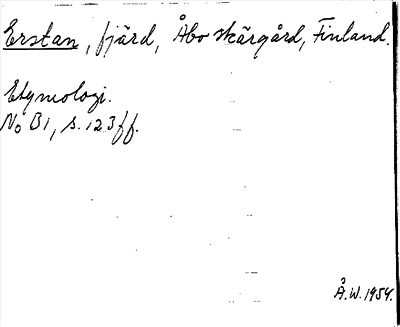 Erstan, fjärd, Åbo skärgård, Finland.
Etymologi.
NoB 1, s. 123 ff.
Å.W. 1954.